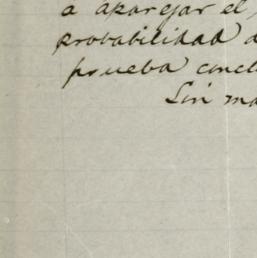 á aparejar el,
probabilidad d
prueba concl
Sin ma